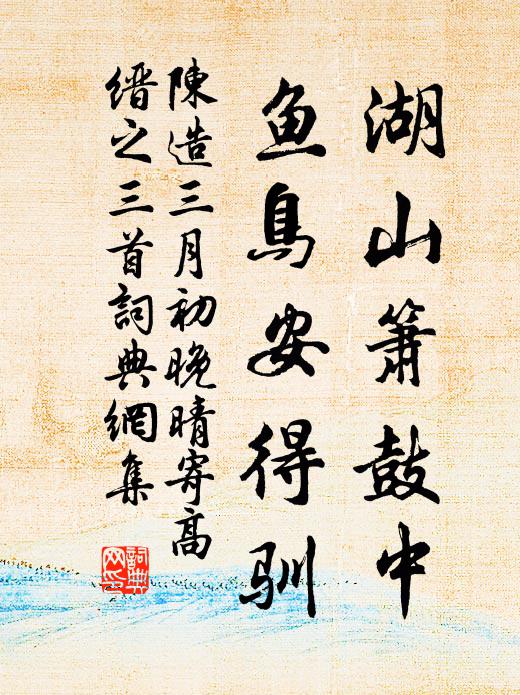 湖山箫鼓中
鱼鳥安得驯
陳造三月初晚晴寄高
缙之三首詞典網集